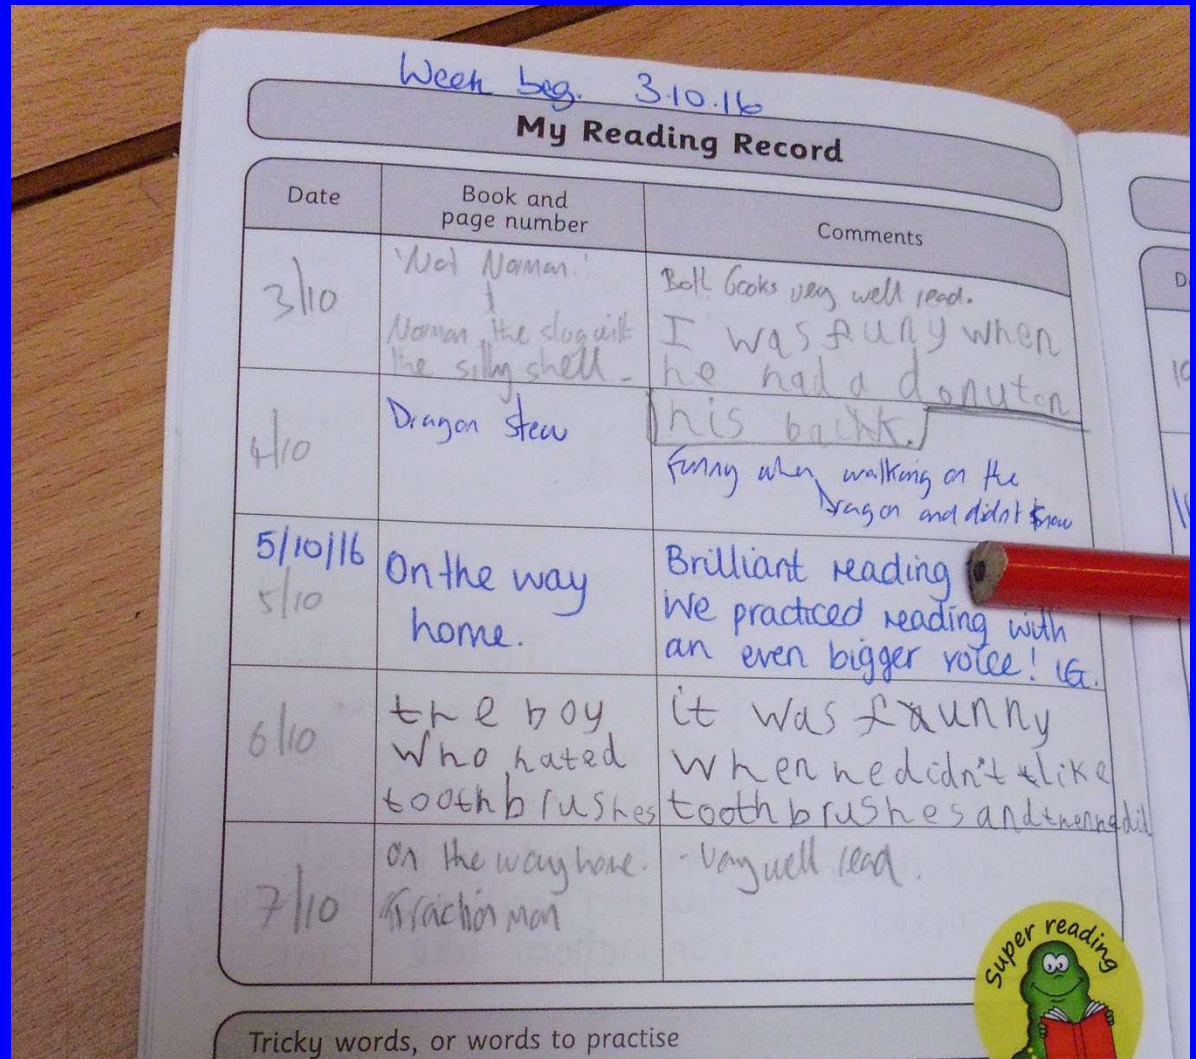 Week beg. 3.10.16
My Reading Record
Date
Book and
page number
Comments
3/10
'Not Norman.'
Norman the slug with
the silly shell -
Both books very well read.
I was funny when
he had a donut on
his backk.
4/10
Dragon Stew
Funny when walking on the
Dragon and didn't know
5/10/16
5/10
On the way
home.
Brilliant reading
We practiced reading with
an even bigger voice! LG.
6/10
the boy
who hated
toothbrushes
it was funny
when he didn't like
toothbrushes and then he did
7/10
on the way home.
man
- Very well read.
Super reading
Tricky words, or words to practise